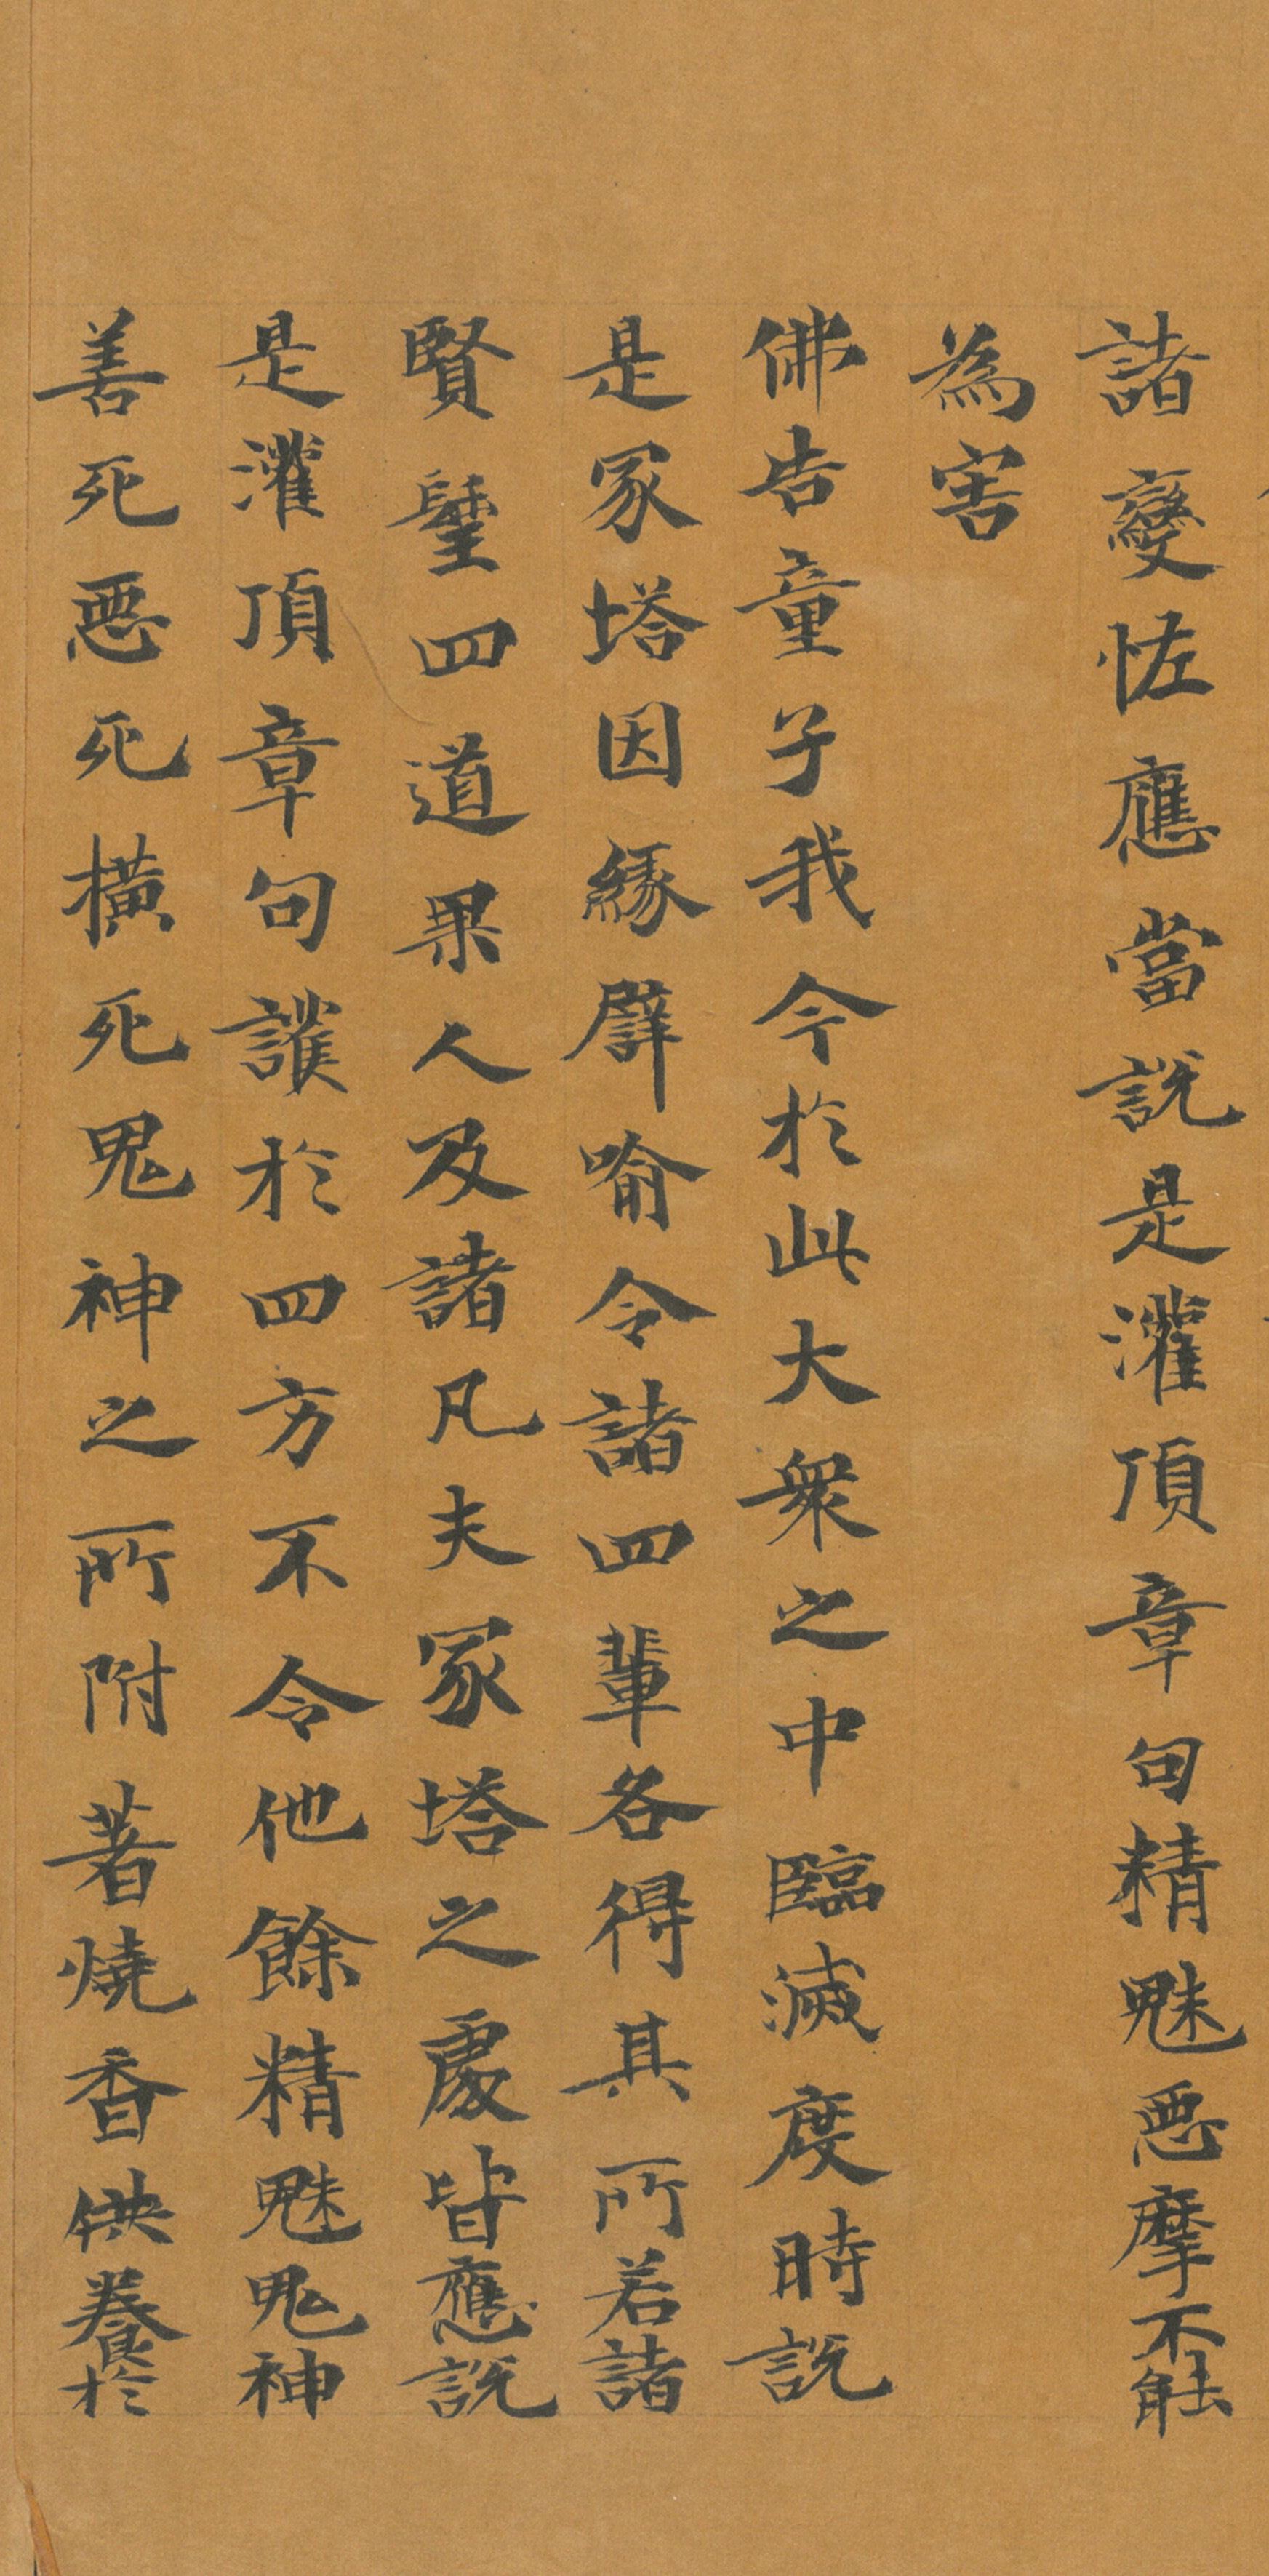 諸變恠應當說是灌頂章句精魅惡摩不能
為害
佛告童子我今於此大衆之中臨滅度時說
是冢塔因緣譬喻令諸四輩各得其所若諸
賢聖四道果人及諸凡夫冢塔之處皆應說
是灌頂章句護於四方不令他餘精魅鬼神
善死惡死橫死鬼神之所附著燒香供養於